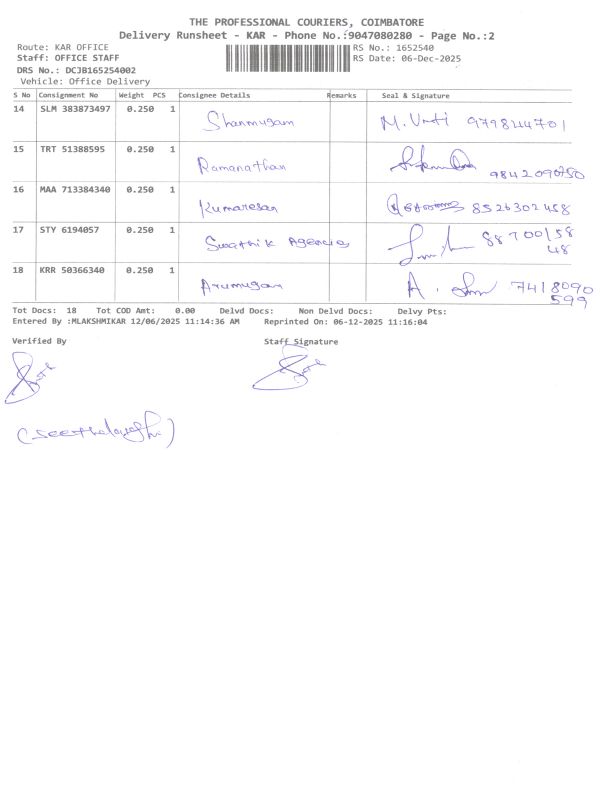 THE PROFESSIONAL COURIERS, COIMBATORE
Delivery Runsheet - KAR - Phone No.:9047080280 - Page No.:2
Route: KAR OFFICE RS No.: 1652540
Staff: OFFICE STAFF RS Date: 06-Dec-2025
DRS No.: DCJB165254002
Vehicle: Office Delivery
S No Consignment No Weight PCS Consignee Details Remarks Seal & Signature
14 SLM 383873497 0.250 1
Shanmugam
15 TRT 51388595 0.250 1
Ramanathan 9842090750
16 MAA 713384340 0.250 1
Kumaresan 8526302458
17 STY 6194057 0.250 1
Swathik Agencies 88700/58
48
18 KRR 50366340 0.250 1
Arumugam 7418090
599
Tot Docs: 18 Tot COD Amt: 0.00 Delvd Docs: Non Delvd Docs: Delvy Pts:
Entered By :MLAKSHMIKAR 12/06/2025 11:14:36 AM Reprinted On: 06-12-2025 11:16:04
Verified By Staff Signature